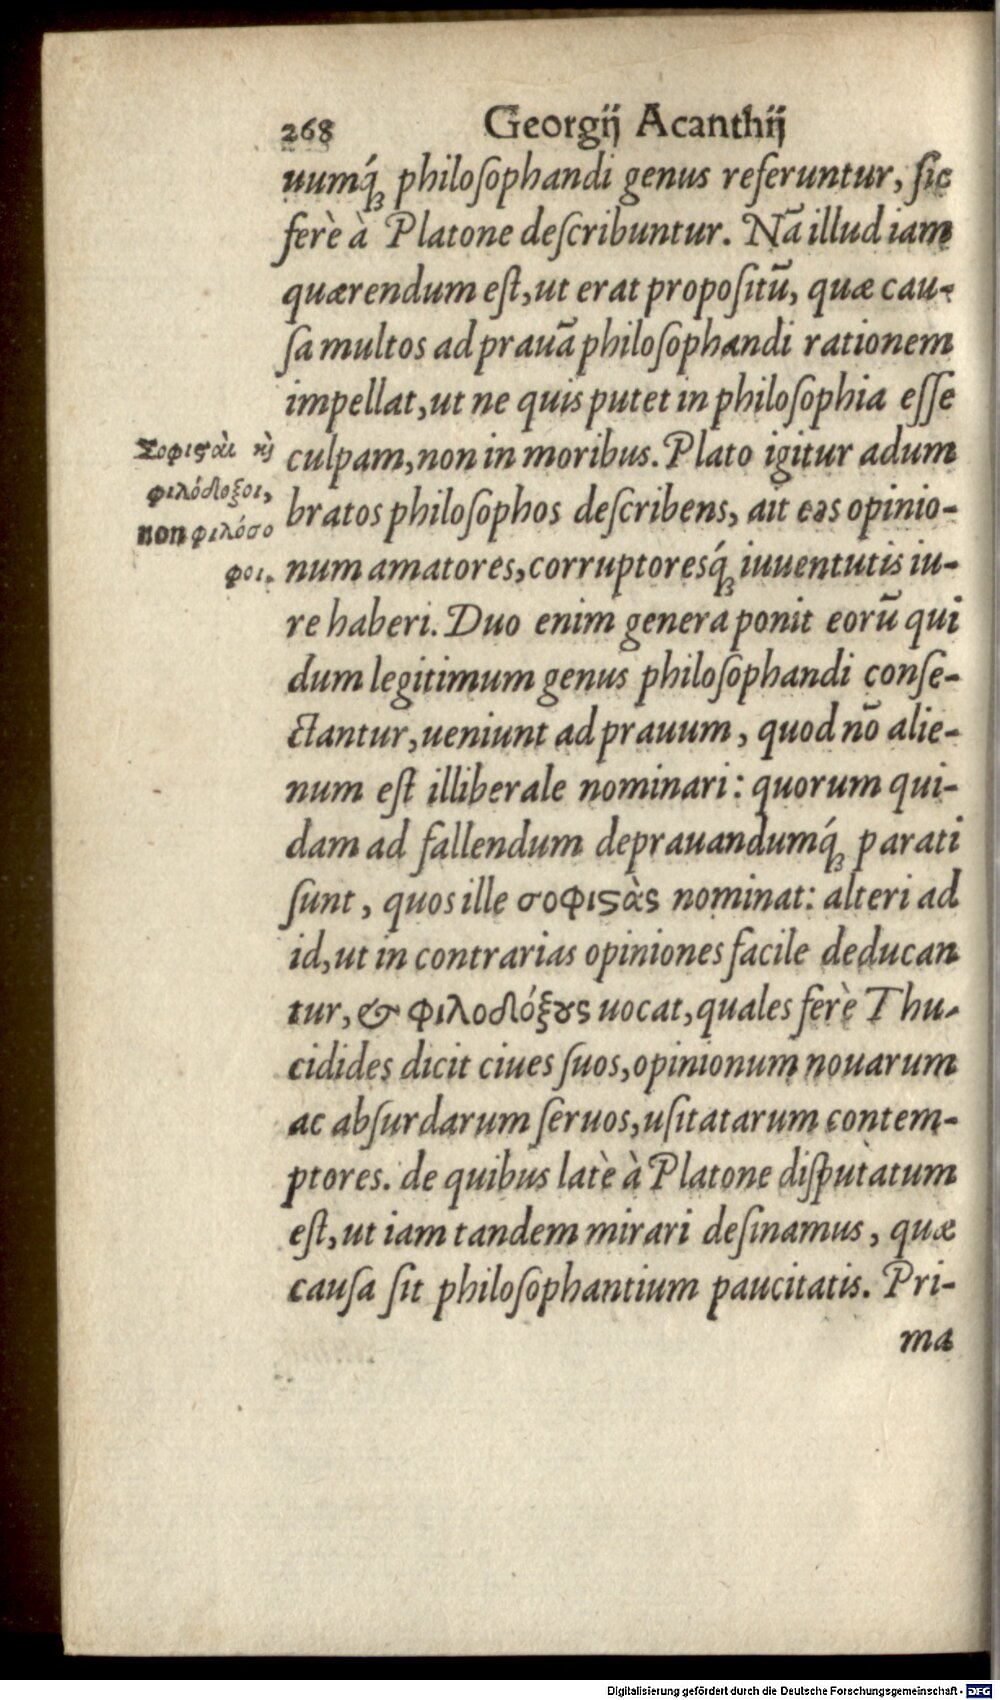 268 Georgij Acanthij
uumq́ꝫ philoſophandi genus referuntur, ſic
ferè à Platone deſcribuntur. Nā illud iam
quærendum eſt, ut erat propoſitū, quæ cau-
ſa multos ad prauā philoſophandi rationem
impellat, ut ne quis putet in philoſophia eſſe
culpam, non in moribus. Plato igitur adum
bratos philoſophos deſcribens, ait eos opinio-
num amatores, corruptoresq́ꝫ iuuentutis iu-
re haberi. Duo enim genera ponit eorū qui
dum legitimum genus philoſophandi conſe-
ctantur, ueniunt ad prauum, quod nō alie-
num eſt illiberale nominari: quorum qui-
dam ad fallendum deprauandumq́ꝫ parati
ſunt, quos ille σοφιϛὰς nominat: alteri ad
id, ut in contrarias opiniones facile deducan
tur, & φιλοδόξȣς uocat, quales ferè Thu-
cidides dicit ciues ſuos, opinionum nouarum
ac abſurdarum ſeruos, uſitatarum contem-
ptores. de quibus latè à Platone diſputatum
eſt, ut iam tandem mirari deſinamus, quæ
cauſa ſit philoſophantium paucitatis. Pri-
ma
Σοφιϛαὶ ϗ̀
φιλόδοξοι,
non φιλόσο
φοι.
Digitalisierung gefördert durch die Deutsche Forschungsgemeinschaft - DFG